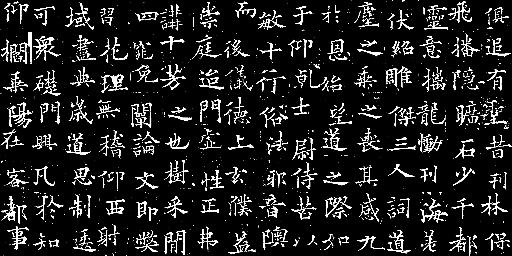 俱追有聖昔刊林保
飛播隱曠石少千都
靈意攜龍慟刊海
伏紹雕傑三人詞道
塵之乘之喪其感九
於恩始望道之際知
于仰乹士尉侍苦以
敏十行俗法邪音隩
而後儀德上玄濮益
崇庭造門虛性正弗
講十芳之也樹采開
四寵闡論文即獎
習花理無稽仰西財
域畫典歲道思制
可衆礎門興凡於知
仰櫚乘陽在客都事